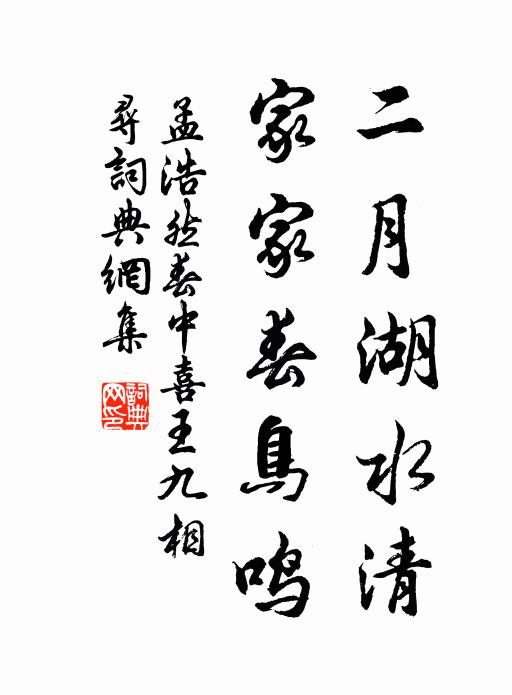 二月湖水清
家家春鳥鳴
孟浩然春中喜王九相
尋詞典網集
詞典
网印